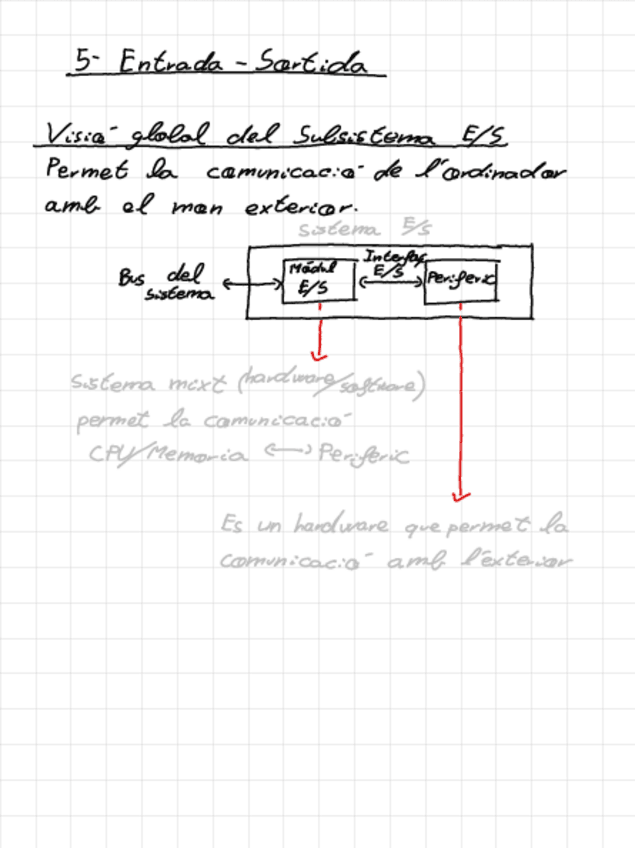 5- Entrada - Sortida
Visió global del Subsistema E/S
Permet la comunicació de l'ordinador
amb el mon exterior.
Sistema E/S
Bus del
sistema
Mòdul
E/S
Interfaç
E/S
Periferic
Sistema mixt (hardware/software)
permet la comunicació
CPU/Memoria <-> Periferic
Es un hardware que permet la
comunicació amb l'exterior